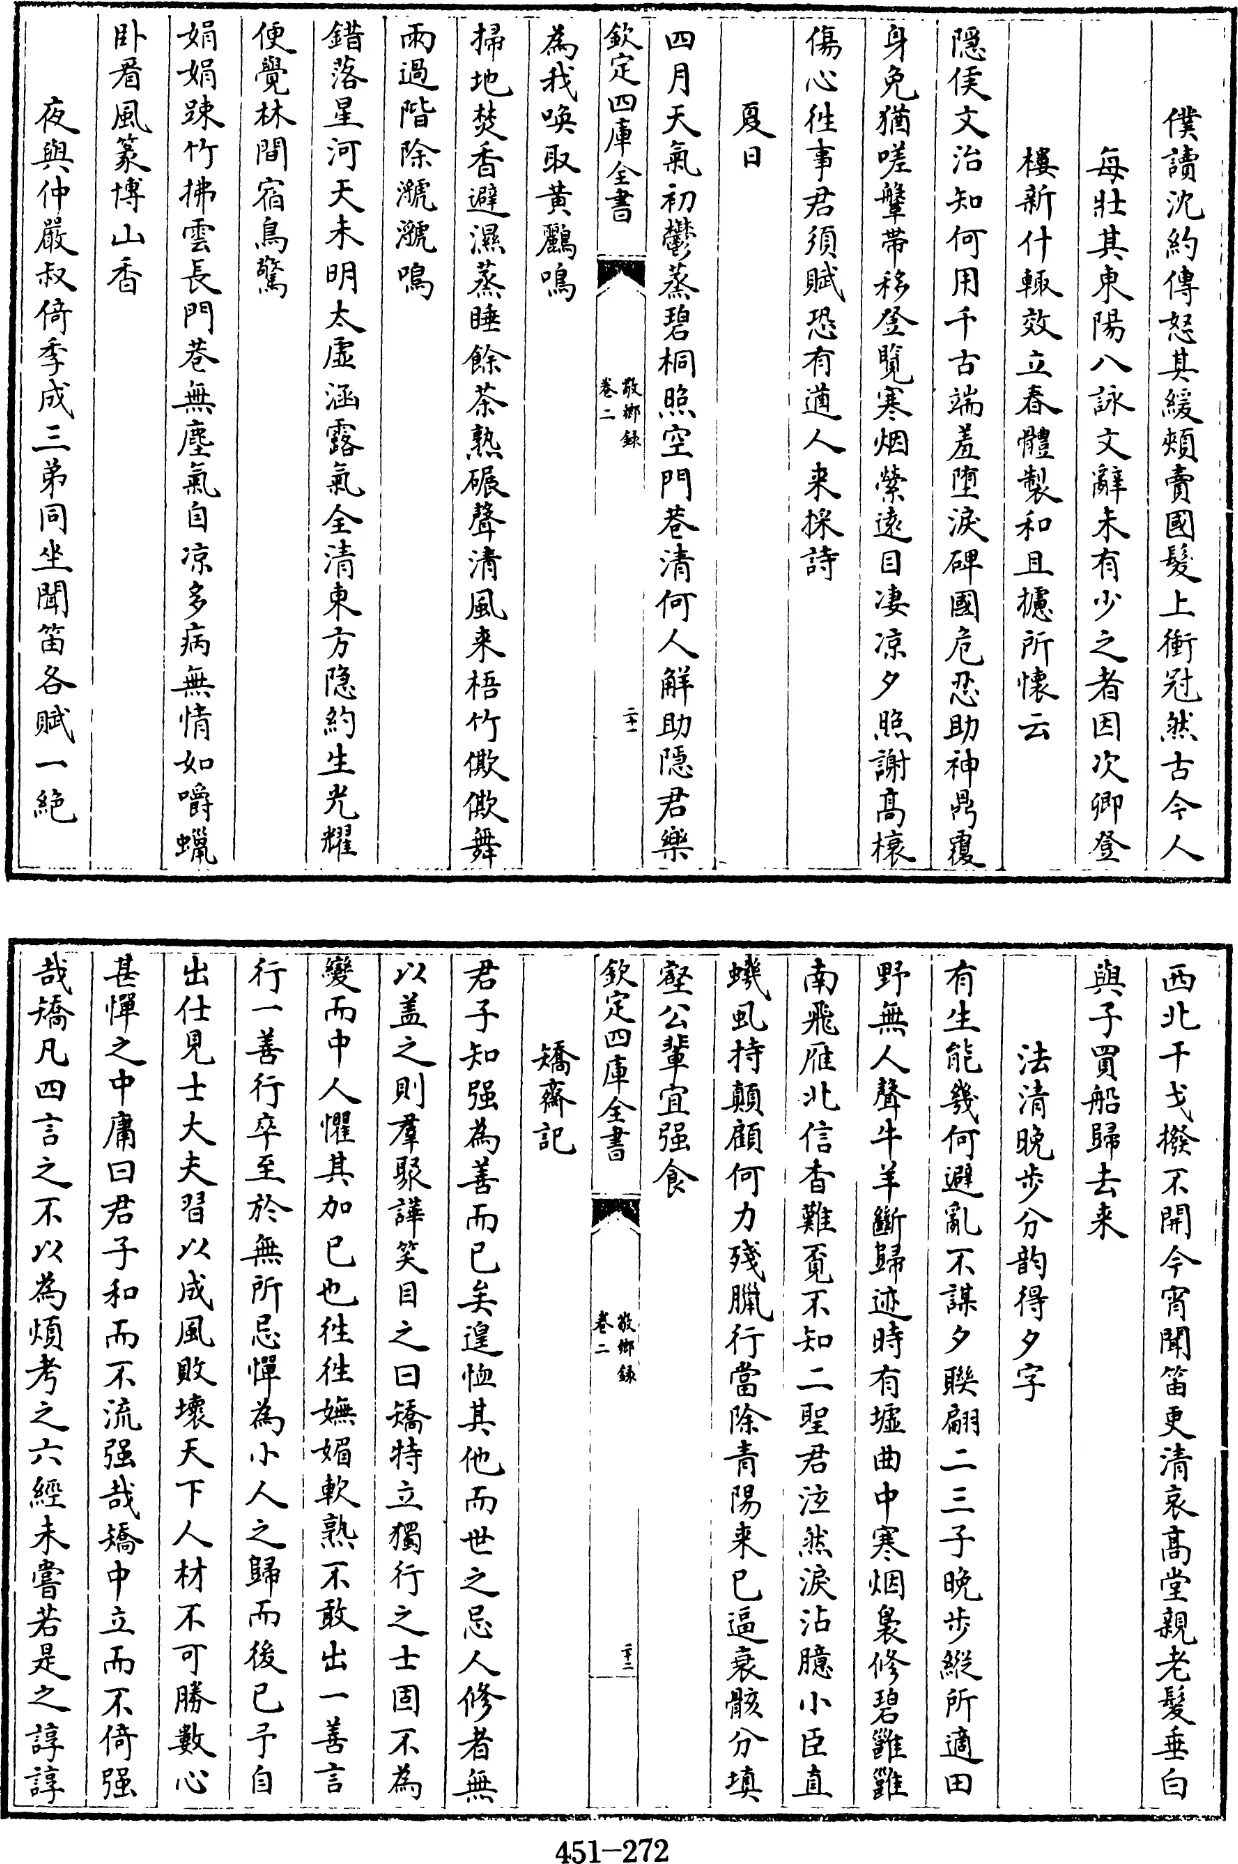 僕讀沈約傳怒其緩頰賣國髮上衝冠然古今人
每壯其東陽八詠文辭未有少之者因次卿登
樓新什輒效立春體製和且攄所懷云
隱侯文治知何用千古端羞墮淚碑國危忍助神鼎覆
身免猶嗟鞶帶移登覽寒烟縈遠目凄凉夕照謝高榱
傷心徃事君須賦恐有遒人来採詩
夏日
四月天氣初鬱蒸碧桐照空門巷清何人解助隱君樂
欽定四庫全書
敬鄉録
卷二
二十一
為我喚取黄鸝鳴
掃地焚香避濕蒸睡餘茶熟碾聲清風来梧竹僛僛舞
雨過階除㶁㶁鳴
錯落星河天未明太虛涵露氣全清東方隐約生光耀
便覺林間宿鳥驚
娟娟踈竹拂雲長門巷無塵氣自凉多病無情如嚼蠟
卧看風篆博山香
夜與仲嚴叔倚季成三弟同坐聞笛各賦一絶
西北干戈撥不開今宵聞笛更清哀高堂親老髮垂白
與子買船歸去来
法清晚步分韵得夕字
有生能幾何避亂不謀夕聯翩二三子晚步縱所適田
野無人聲牛羊斷歸迹時有墟曲中寒烟裊修碧雝雝
南飛雁北信杳難覔不知二聖君泫然淚沾臆小臣直
蟣虱持顛顧何力殘臘行當除青陽来已逼衰骸分填
壑公輩宜强食
欽定四庫全書
敬鄉録
卷二
二十二
矯齋記
君子知强為善而已矣遑恤其他而世之忌人修者無
以盖之則羣聚譁笑目之曰矯特立獨行之士固不為
變而中人懼其加已也徃徃嫵媚軟熟不敢出一善言
行一善行卒至於無所忌憚為小人之歸而後已予自
出仕見士大夫習以成風敗壞天下人材不可勝數心
甚憚之中庸曰君子和而不流强哉矯中立而不倚强
哉矯凡四言之不以為煩考之六經未嘗若是之諄諄
451-272